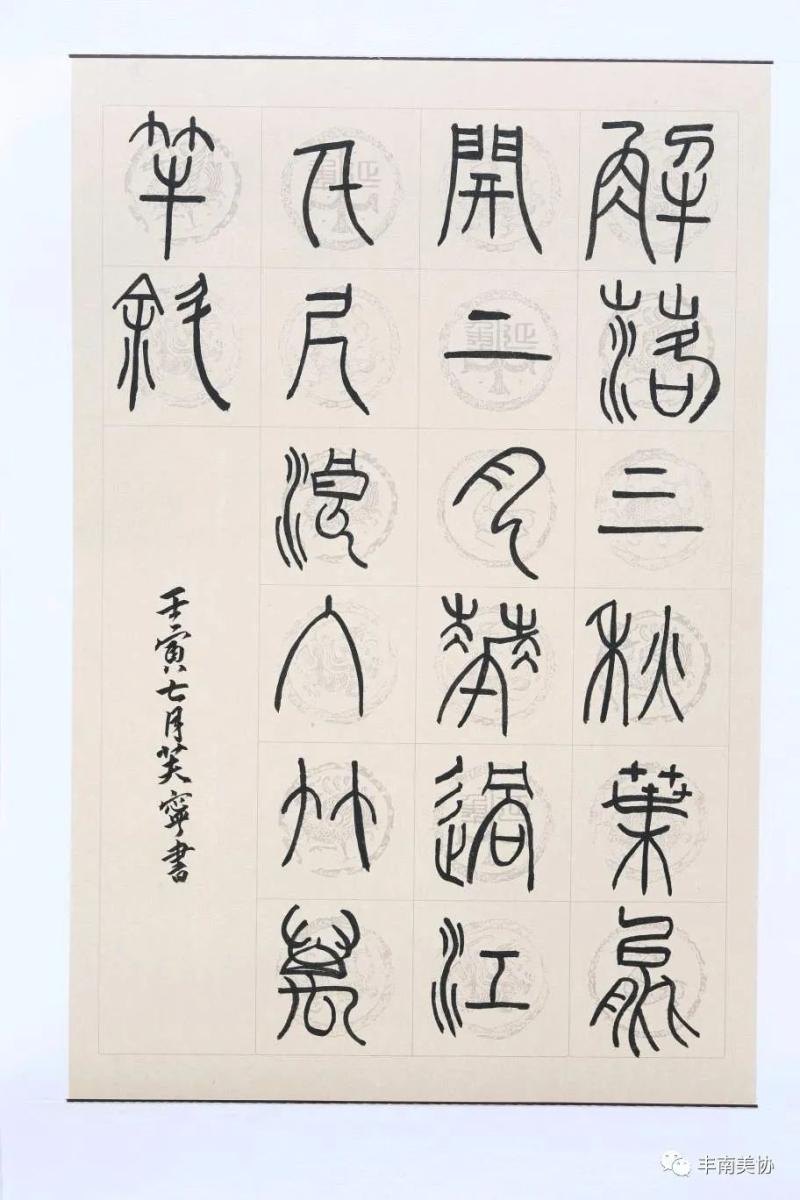 解落三秋葉能
開二月華過江
千尺浪入竹萬
竿斜
壬寅七月芙寧書
丰南美协